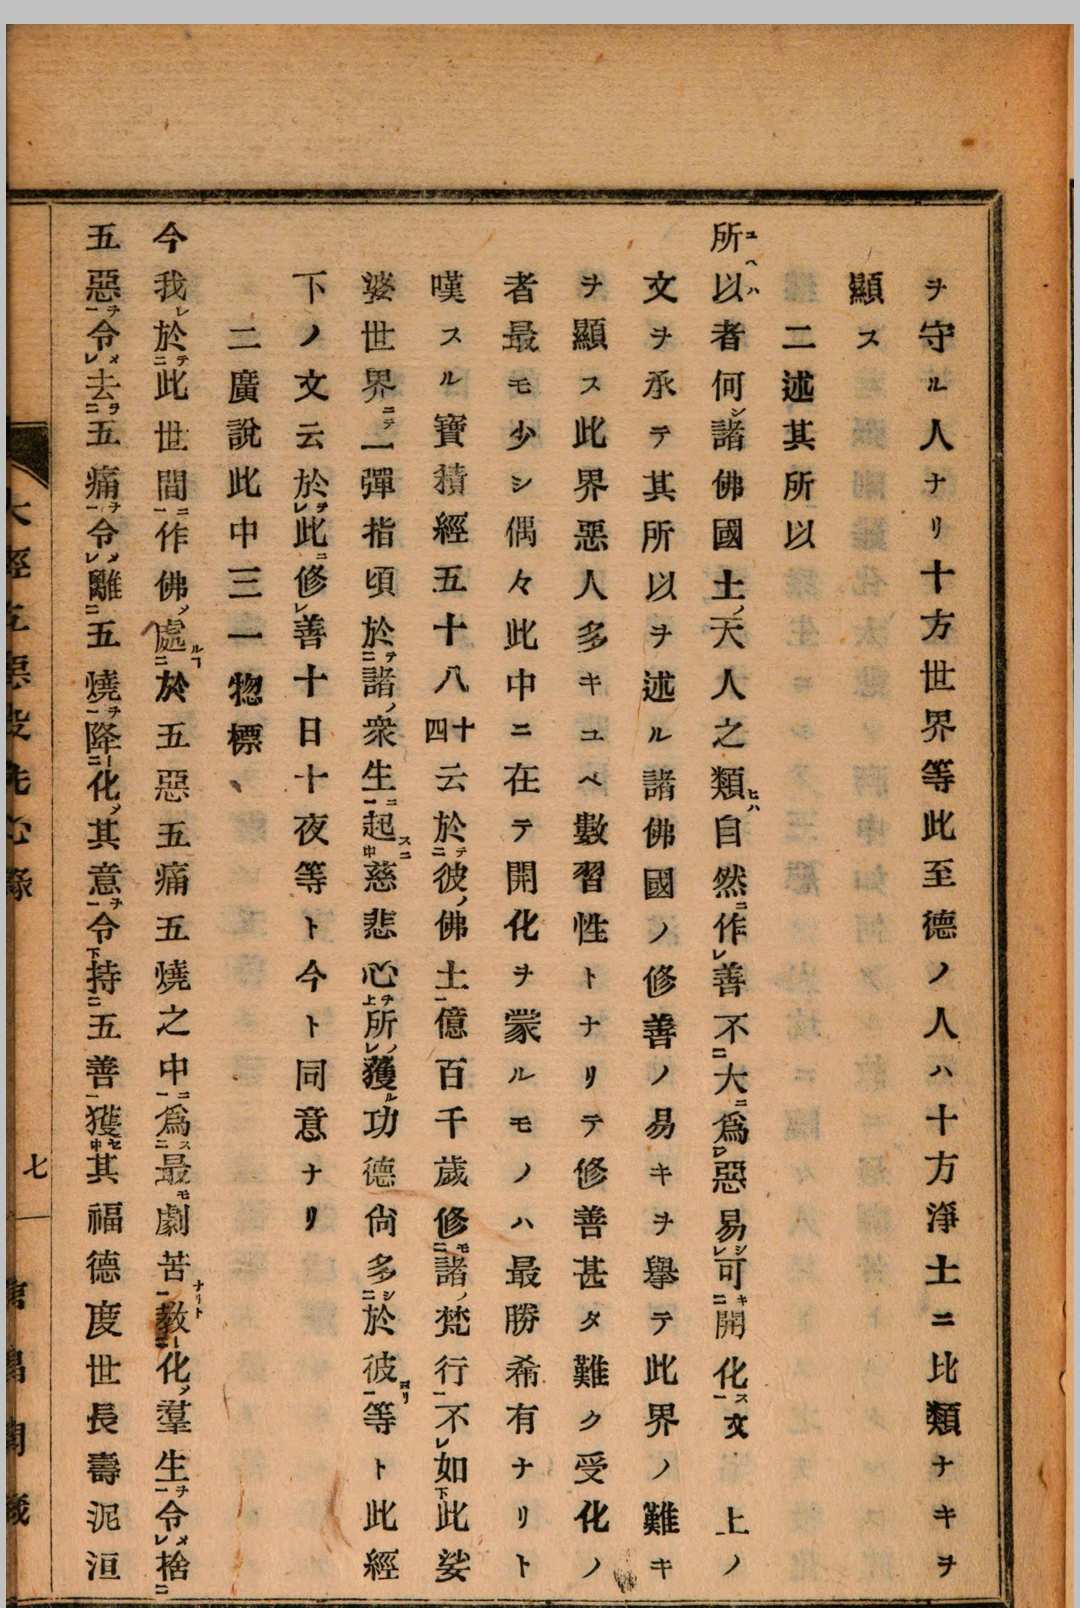 ヲ守ル人ナリ十方世界等此至德ノ人ハ十方淨土ニ比類ナキヲ
顯ス
二述其所以
所以者何諸佛國土天人之類自然作善不大爲惡易可開化文 上ノ
文ヲ承テ其所以ヲ述ル諸佛國ノ修善ノ易キヲ擧テ此界ノ難キ
ヲ顯ス此界惡人多キユヘ數習性トナリテ修善甚タ難ク受化ノ
者最モ少シ偶々此中ニ在テ開化ヲ蒙ルモノハ最勝希有ナリト
嘆スル寶積經五十八四十云於彼佛土億百千歲修諸梵行不如此娑
婆世界一彈指頃於諸衆生起慈悲心所獲功德尙多於彼等ト此經
下ノ文云於此修善十日十夜等ト今ト同意ナリ
二廣說此中三一惣標
今我於此世間作佛處於五惡五痛五燒之中爲最劇苦敎化羣生令捨
五惡令去五痛令離五燒降化其意令持五善獲其福德度世長壽泥洹
七